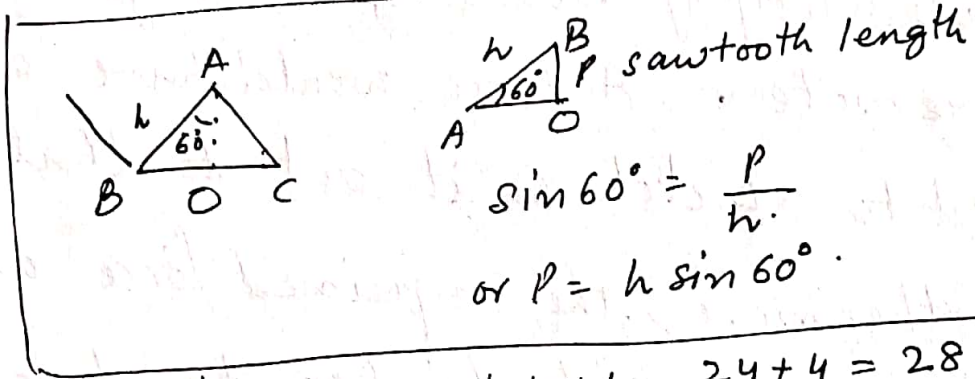 A
h
60°
B O C
h B
P sawtooth length
60°
A O
sin 60° = P/h.
or P = h sin 60°.
24 + 4 = 28